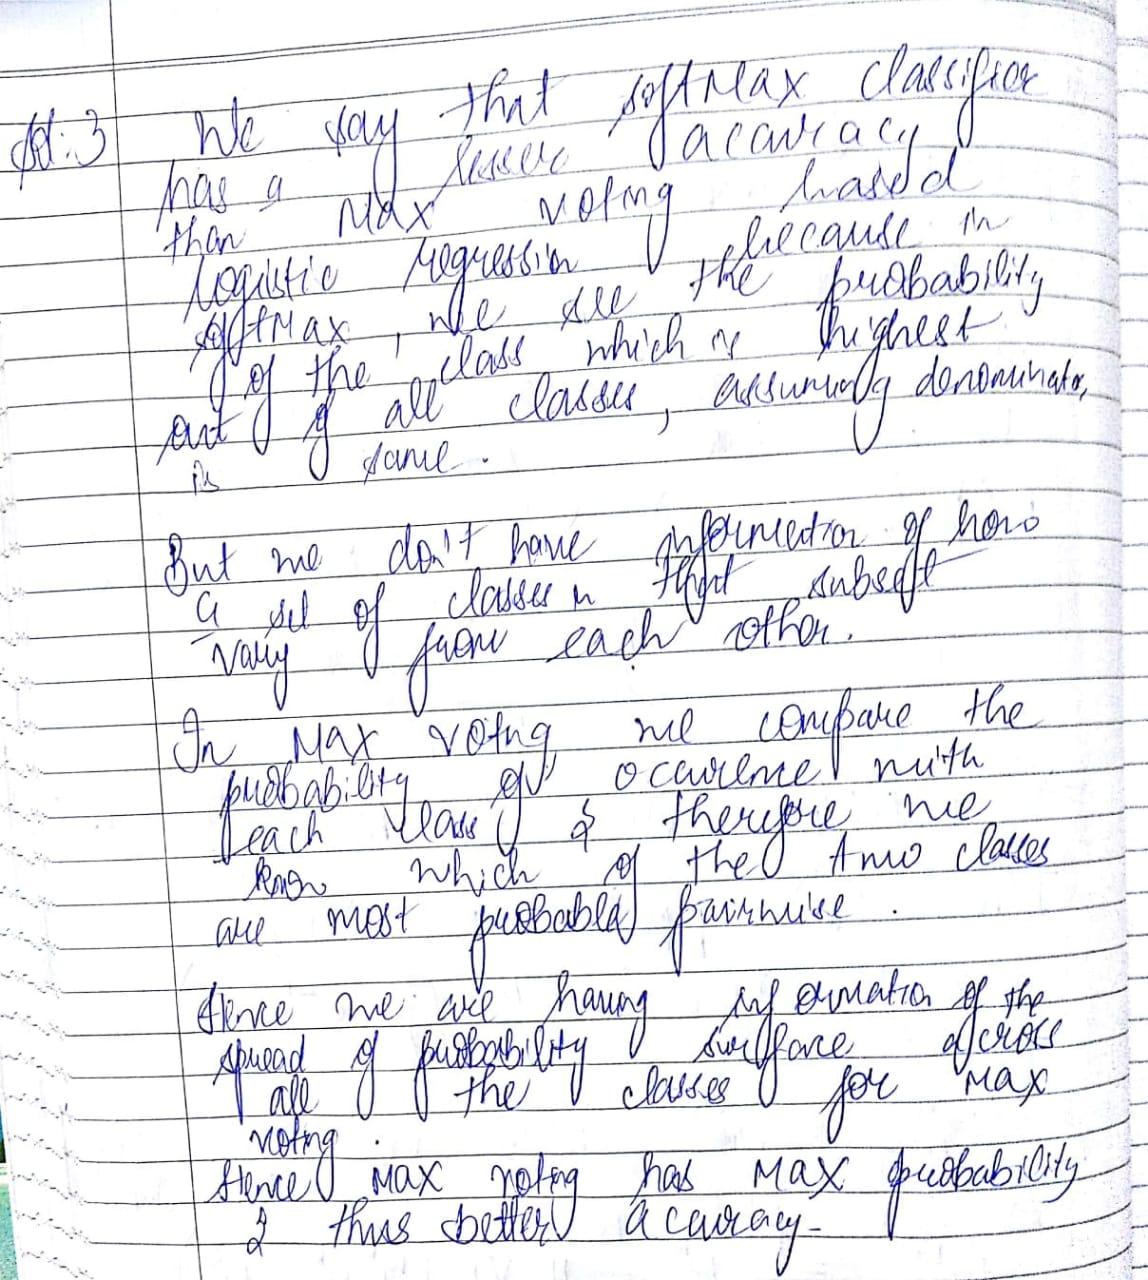 We say that softMax classifier
has a lesser accuracy
than Max voting based
logistic regression because in
softMax, we see the probability
of the class which is highest
out of all classes, assuming denominator
is same.
But we don't have information of how
a set of classes in that subset
vary from each other.
In Max voting we compare the
probability of occurence with
each class & therefore we
know which of the two classes
are most probable pairwise.
Hence we are having information of the
spread of probability surface across
all the classes for Max
voting.
Hence Max voting has Max probability
& thus better accuracy-